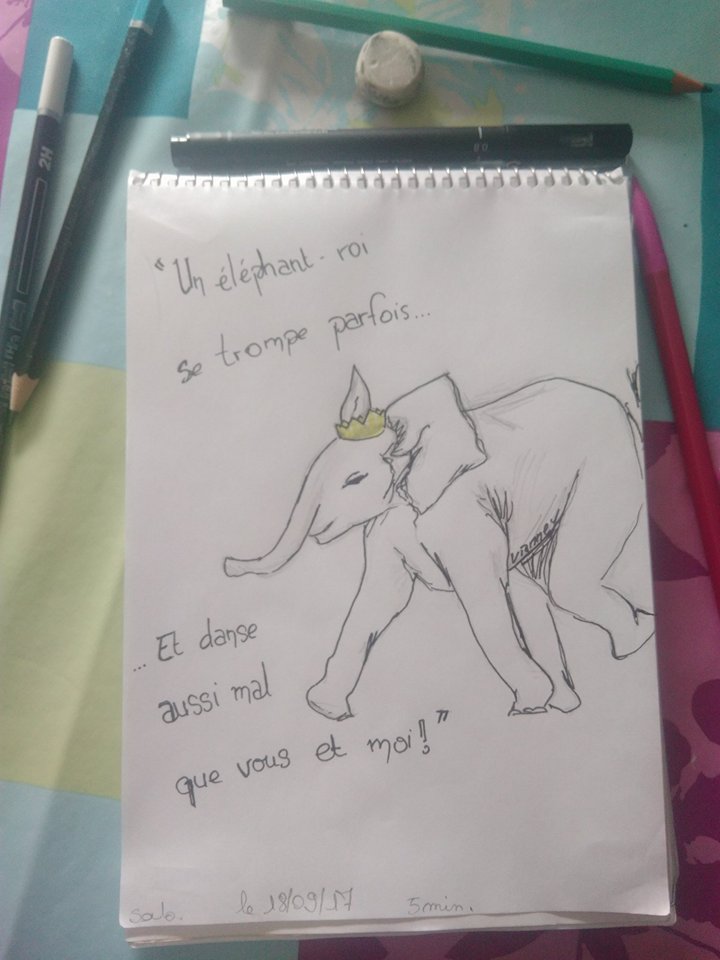 2H
80
"Un éléphant-roi
se trompe parfois...
...Et danse
aussi mal
que vous et moi!!"
le 18/09/17 5min.